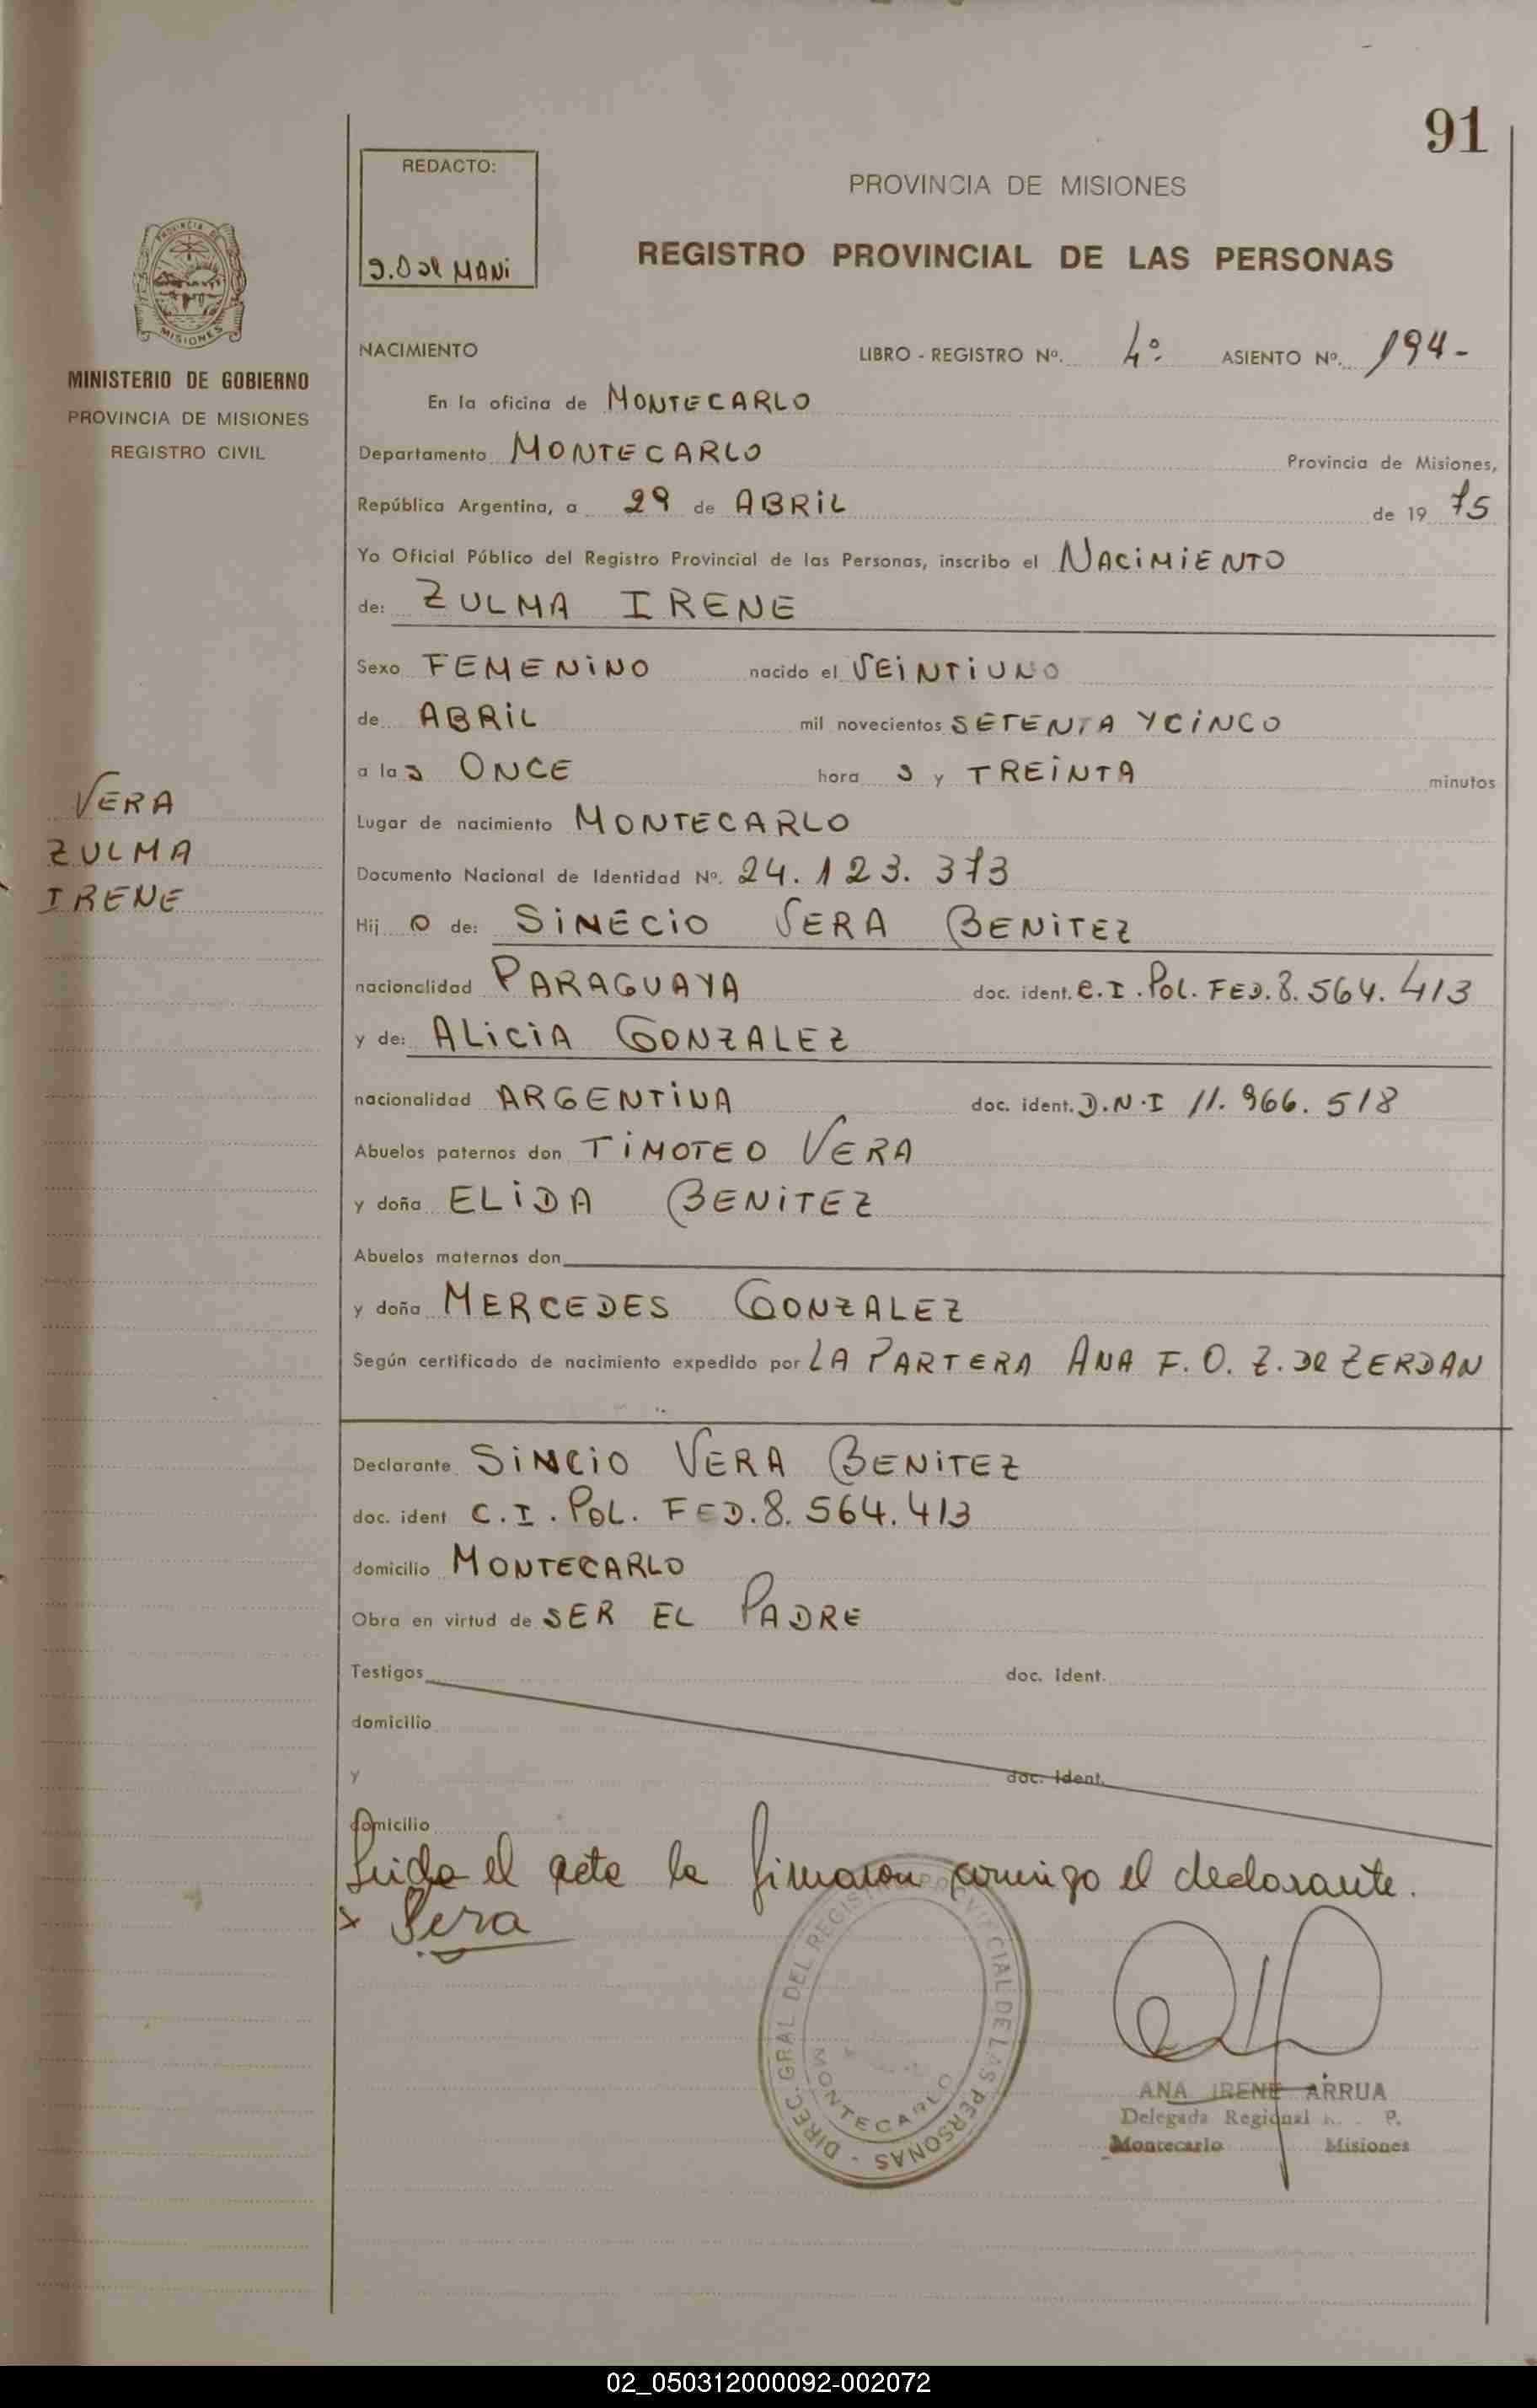 91
REDACTO:
PROVINCIA DE MISIONES
REGISTRO PROVINCIAL DE LAS PERSONAS
MINISTERIO DE GOBIERNO
PROVINCIA DE MISIONES
REGISTRO CIVIL
NACIMIENTO LIBRO - REGISTRO Nº. 4º ASIENTO Nº. 194-
En la oficina de MONTECARLO
Departamento MONTECARLO Provincia de Misiones,
República Argentina, a 29 de ABRIL de 19 75
Yo Oficial Público del Registro Provincial de las Personas, inscribo el NACIMIENTO
de: ZULMA IRENE
Sexo FEMENINO nacido el VEINTIUNO
de ABRIL mil novecientos SETENTA Y CINCO
a las ONCE hora s y TREINTA minutos
VERA
ZULMA
IRENE
Lugar de nacimiento MONTECARLO
Documento Nacional de Identidad Nº. 24.123.373
Hij a de: SINECIO VERA BENITEZ
nacionalidad PARAGUAYA doc. ident. C.I. POL. FED. 8.564.413
y de: ALICIA GONZALEZ
nacionalidad ARGENTINA doc. ident. D.N.I 11.966.518
Abuelos paternos don TIMOTEO VERA
y doña ELIDA BENITEZ
Abuelos maternos don
y doña MERCEDES GONZALEZ
Según certificado de nacimiento expedido por LA PARTERA ANA F. O. Z. DE ZERDAN
Declarante SINCIO VERA BENITEZ
doc. ident C.I. POL. FED. 8.564.413
domicilio MONTECARLO
Obra en virtud de SER EL PADRE
Testigos doc. Ident.
domicilio
y doc. Ident.
domicilio
Leida el acta la firmaron conmigo el declarante.
x Vera
DIREC. GRAL DEL REGISTRO PROVINCIAL DE LAS PERSONAS -
MONTECARLO
ANA IRENE ARRUA
Delegada Regional P.
Montecarlo Misiones
02_050312000092-002072